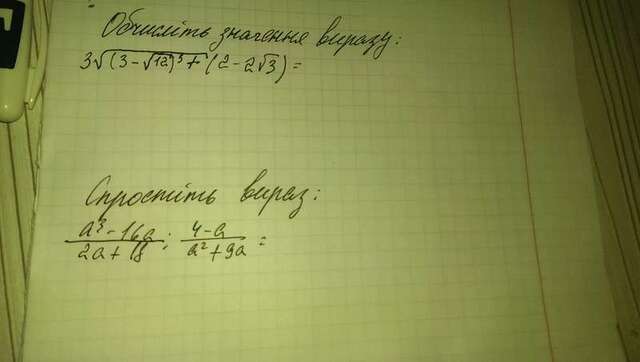 Обчисліть значення виразу:
3√(3-√12)³+(2-2√3)=
Спростіть вираз:
a³-16a / 2a+18 : 4-a / a²+9a =